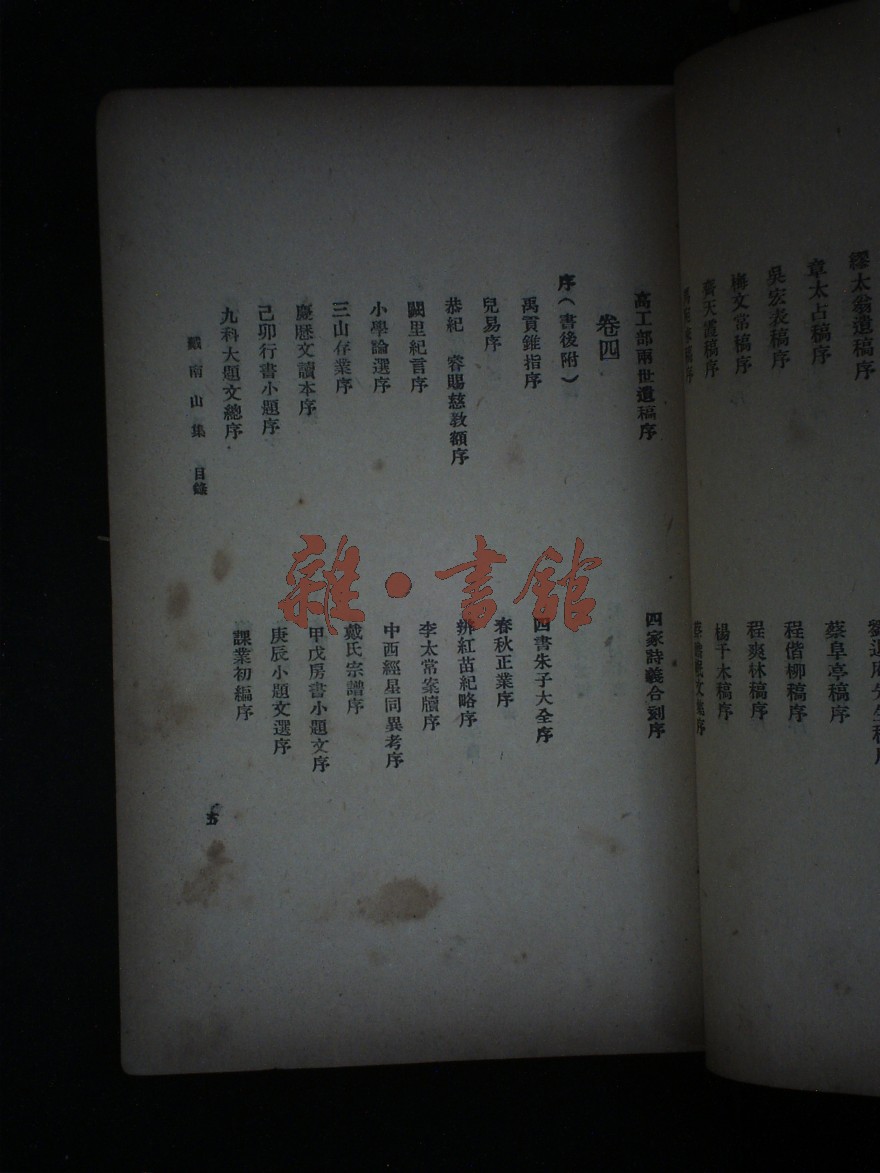 繆太翁遺稿序
章太占稿序
蔡阜亭稿序
吳宏表稿序
程偕柳稿序
梅文常稿序
程爽林稿序
齊天霞稿序
楊千木稿序
稿序
文集序
高工部兩世遺稿序
四家詩義合刻序
卷四
序(書後附)
禹貢錐指序
四書朱子大全序
兒易序
春秋正業序
恭紀 睿賜慈教額序
辨紅苗紀略序
闕里紀言序
李太常案牘序
小學論選序
中西經星同異考序
三山存業序
戴氏宗譜序
慶曆文讀本序
甲戌房書小題文序
己卯行書小題序
庚辰小題文選序
九科大題文總序
課業初編序
戴南山集 目錄
五
雜·書館